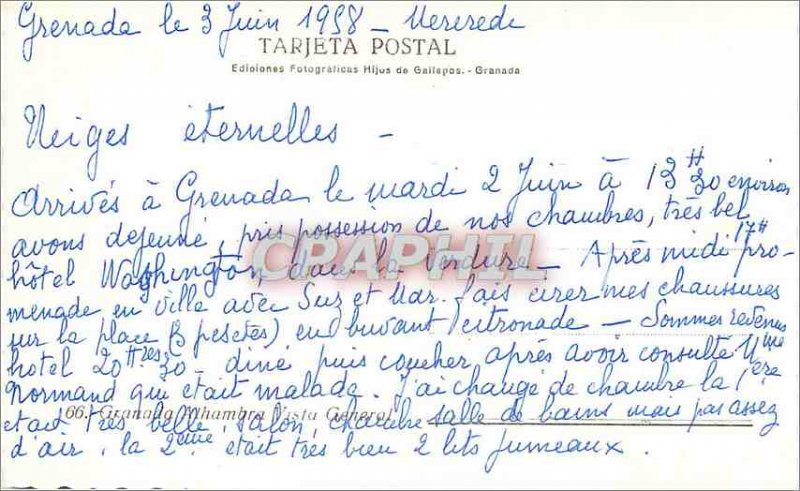 Grenada le 3 Juin 1958 - Mercredi
TARJETA POSTAL
Ediciones Fotográficas Hijos de Gallegos. - Granada
Neiges éternelles -
Arrivés à Grenada le mardi 2 Juin à 13H30 environ
avons dejeuné, pris possession de nos chambres, très bel
hôtel Washington, dans la verdure - Après midi 17H pro-
menade en ville avec Suz et Mar. fais cirer mes chaussures
sur la place (3 pesetes) en buvant citronade - Sommes revenus
hotel 20Hres 30 - diné puis coucher, après avoir consulté Mme
Normand qui était malade. J'ai changé de chambre la 1ère
66. Granada Alhambra Vista General
etait très belle, salon, chambre salle de bains mais pas assez
d'air, la 2eme etait très bien 2 lits jumeaux.
CPAPHIL